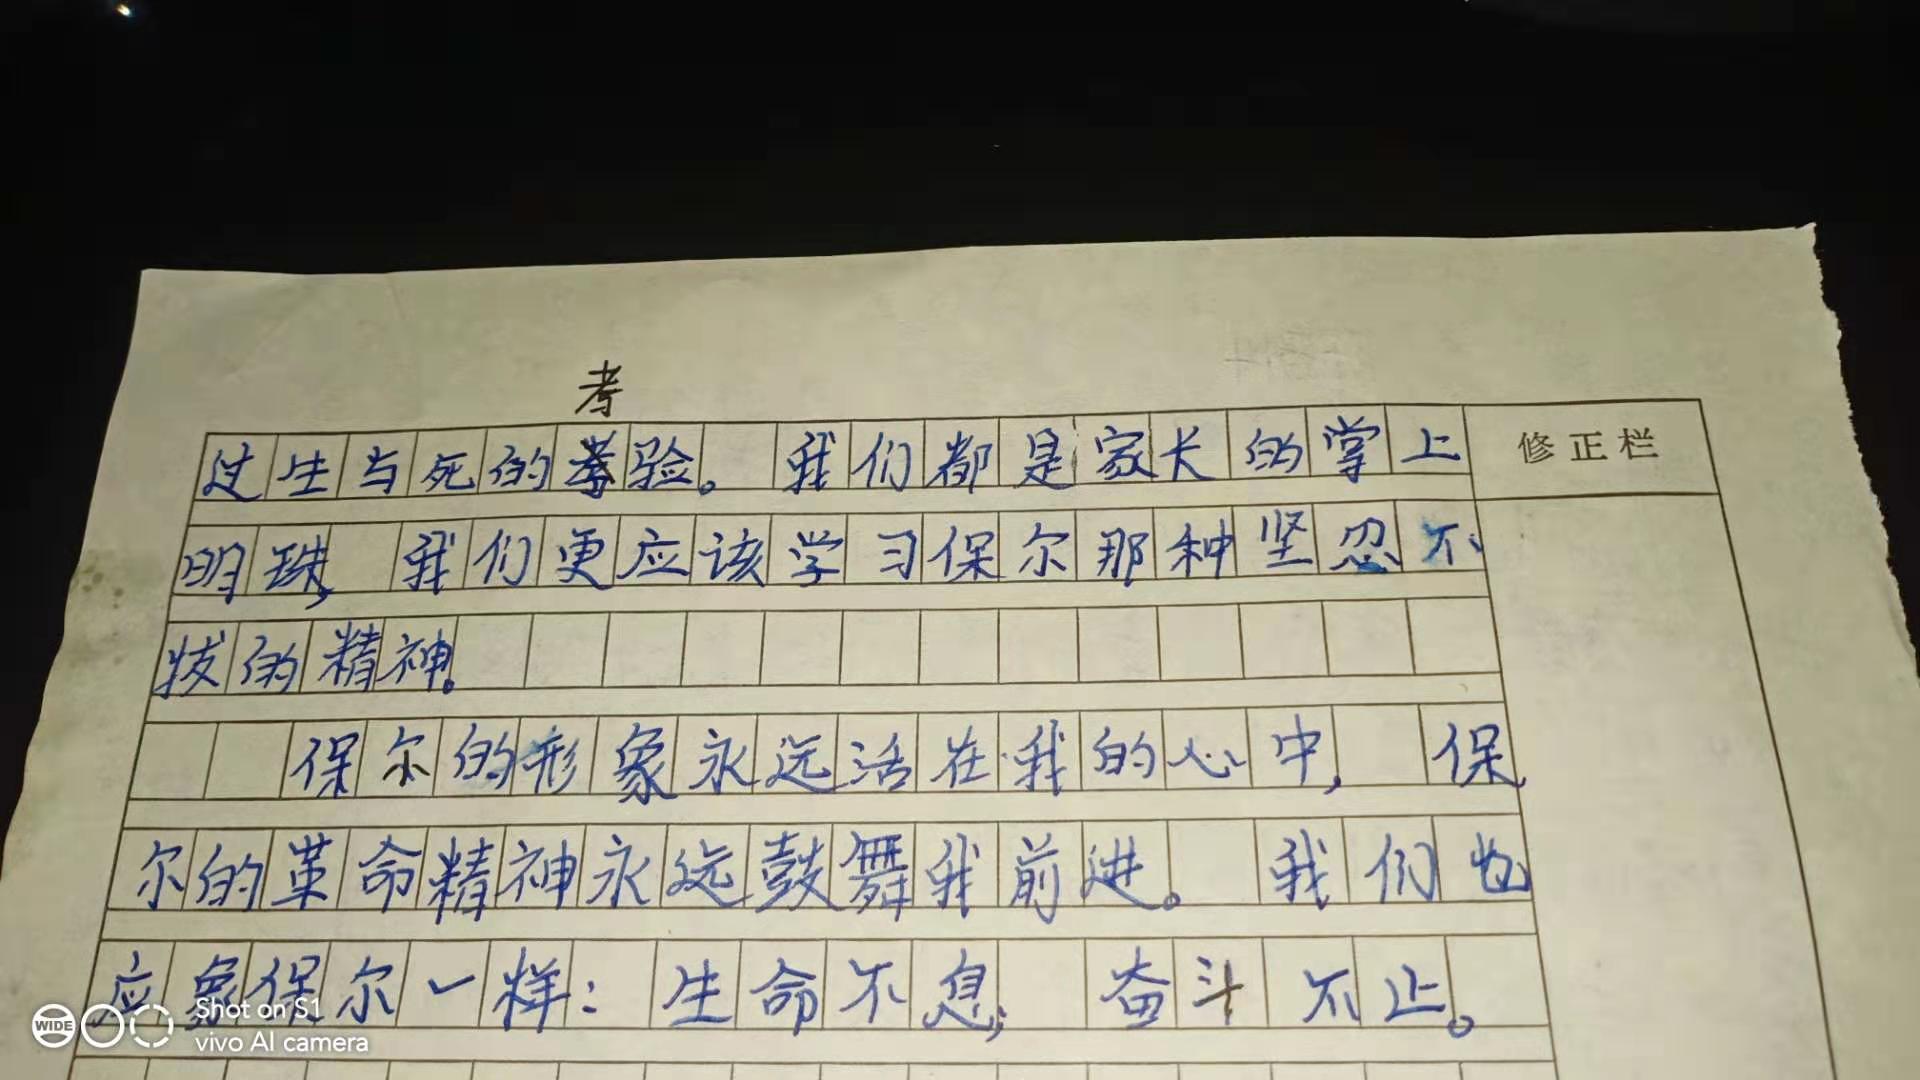 考
过生与死的考验。我们都是家长的掌上
修正栏
明珠,我们更应该学习保尔那种坚忍不
拔的精神。
保尔的形象永远活在我的心中,保
尔的革命精神永远鼓舞我前进。我们也
应象保尔一样:生命不息,奋斗不止。
WIDE
Shot on S1
vivo AI camera